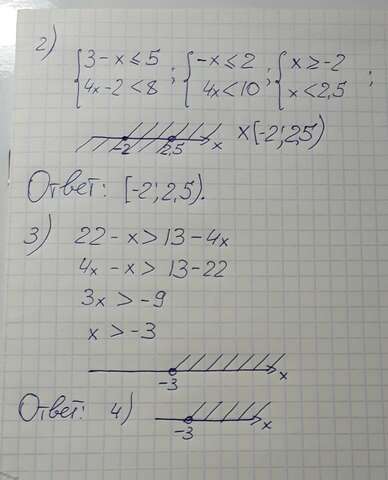 2)
{3-x≤5 ; {-x≤2 ; {x≥-2 ;
{4x-2<8 {4x<10 {x<2,5
-2 2,5 x x[-2;2,5)
Ответ: [-2;2,5).
3) 22-x>13-4x
4x-x>13-22
3x>-9
x>-3
-3 x
Ответ: 4) -3 x